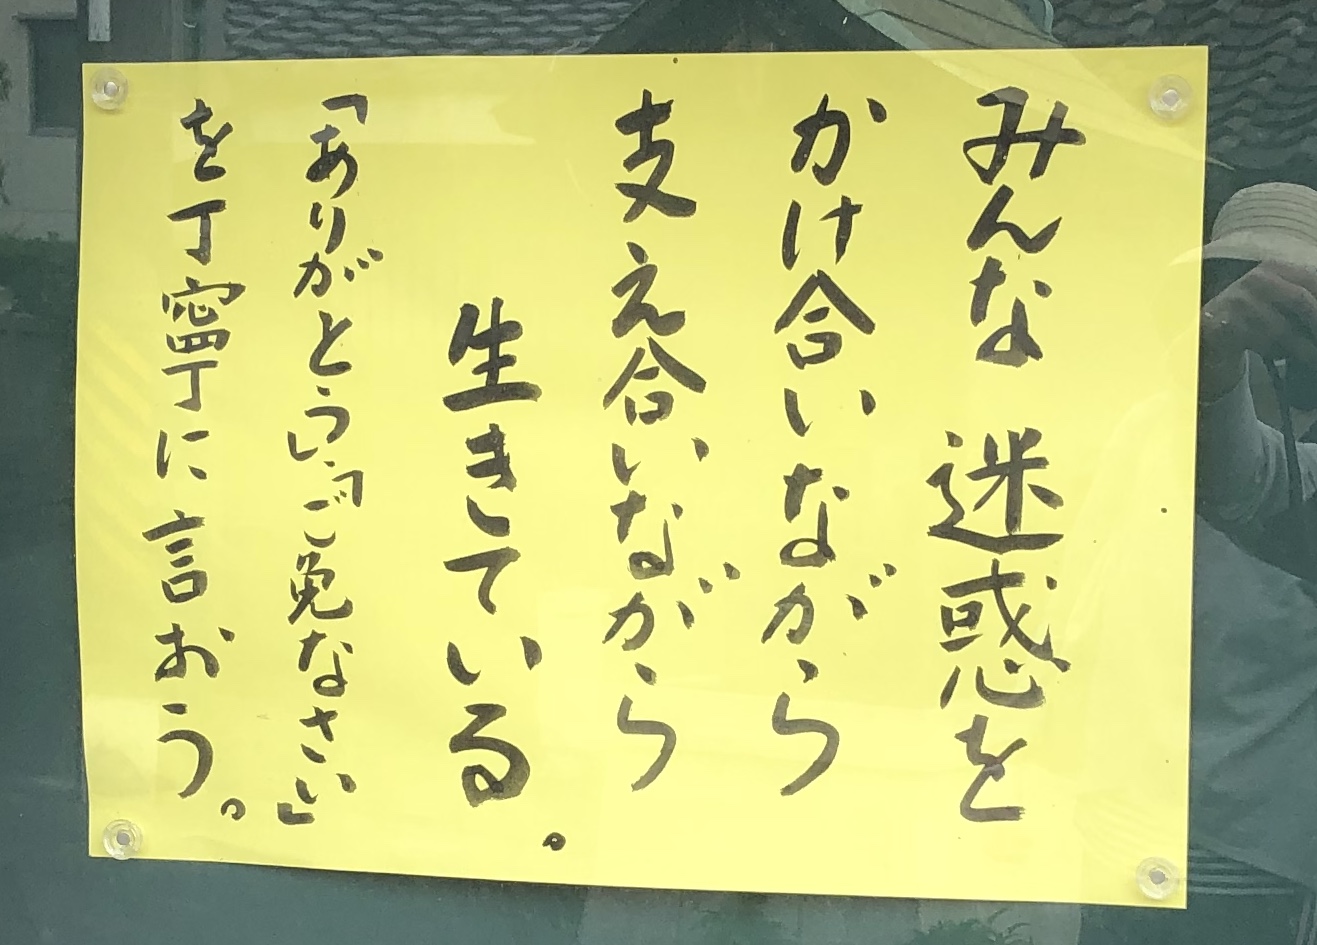 みんな 迷惑を
かけ合いながら
支え合いながら
生きている。
「ありがとう」「ご免なさい」
を丁寧に言おう。